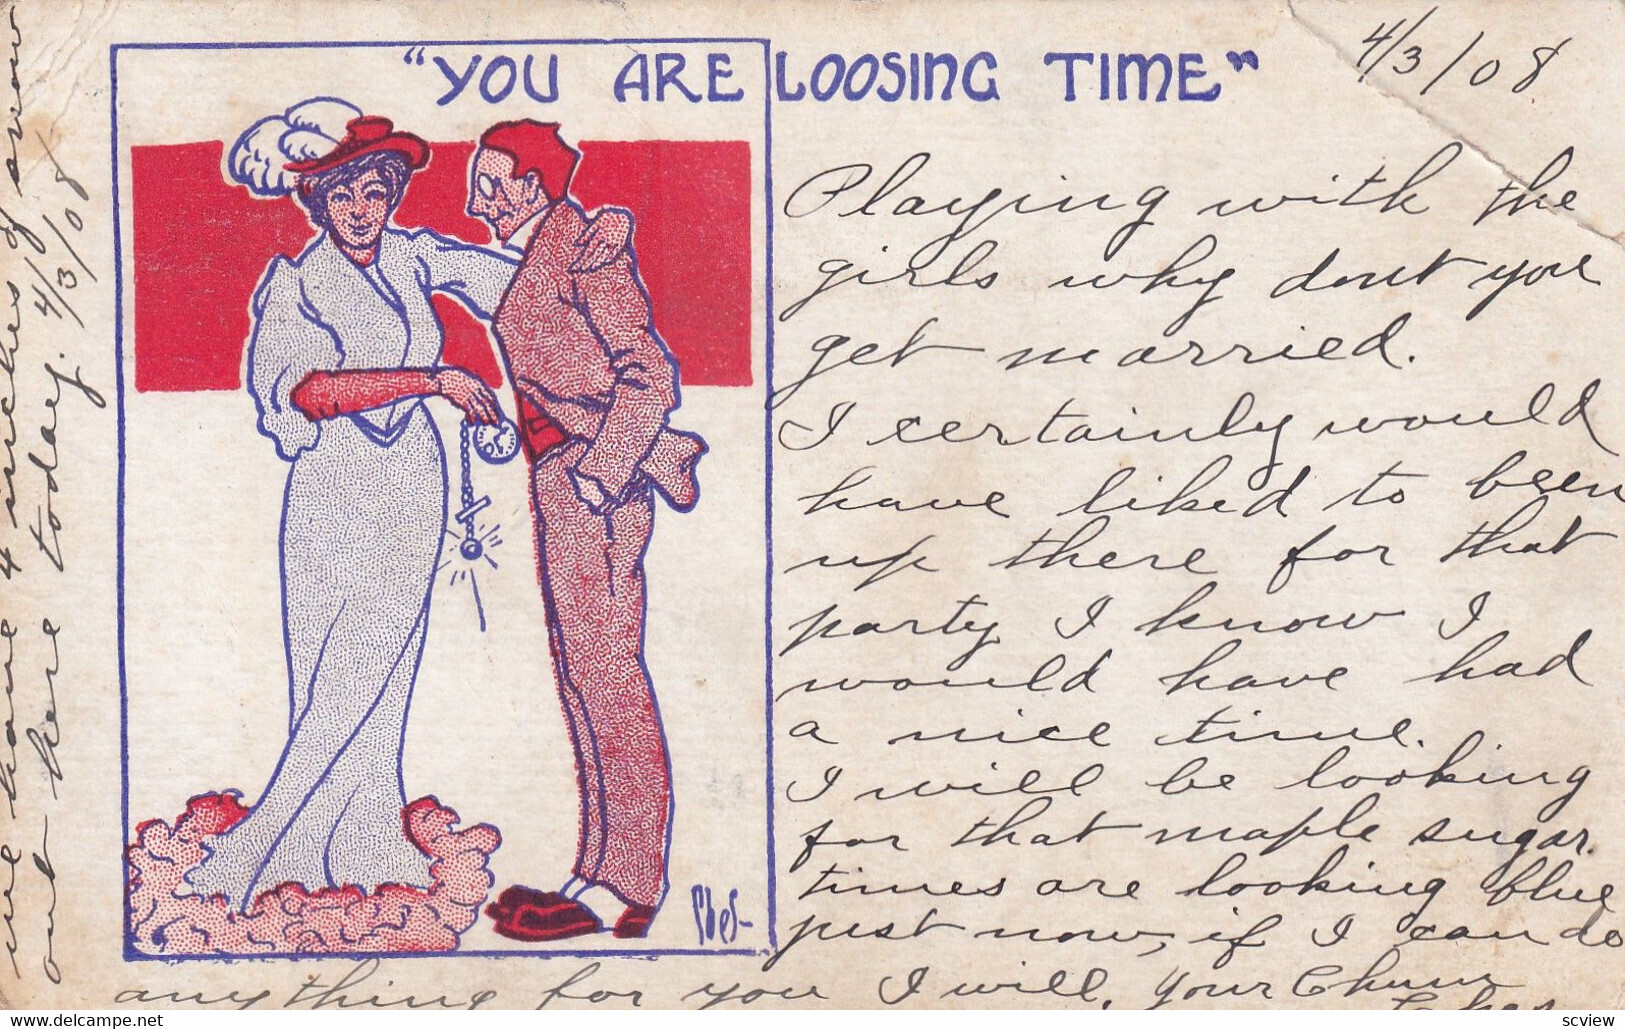 "YOU ARE LOOSING TIME"
4/3/08
Playing with the
girls why dont you
get married.
I certainly would
have liked to been
up there for that
party I know I
would have had
a nice time.
I will be looking
for that maple sugar.
times are looking blue
just now, if I can do
anything for you I will. Your Chum
we have 4 inches of snow
out here today. 4/3/08
scview